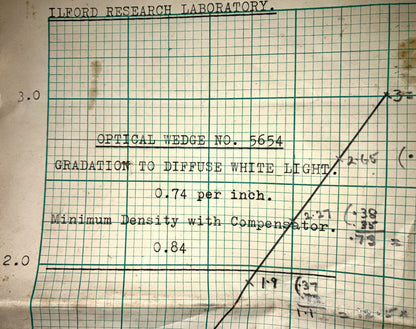 ILFORD RESEARCH LABORATORY.
3.0
3=
OPTICAL WEDGE NO. 5654
2.65
GRADATION TO DIFFUSE WHITE LIGHT.
0.74 per inch.
2.27 (.38
Minimum Density with Compensator.
.35
.73 =
0.84
2.0
1.9 (.37
1.1